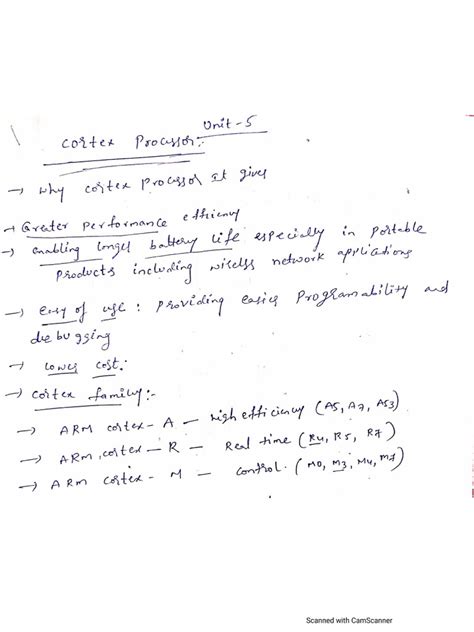 Unit-5
Cortex Processor:-
→ Why cortex Processor it gives
→ Greater performance efficiency
→ enabling longer battery life especially in portable
products including wireless network applications
→ easy of use : providing easier programability and
debugging
→ lower cost:
→ Cortex family:-
→ ARM cortex - A — high efficiency (A5, A7, A53)
→ ARM cortex - R — Real time (R4, R5, R7)
→ ARM cortex - M — control. (M0, M3, M4, M7)
Scanned with CamScanner